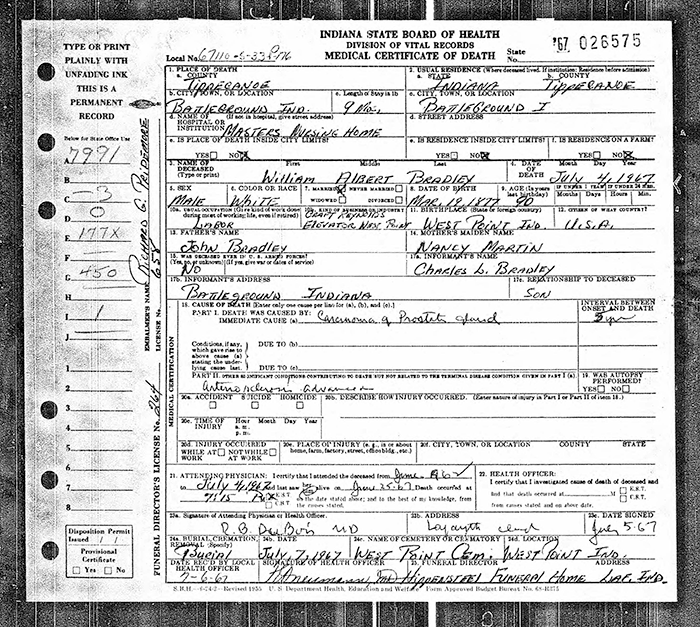 INDIANA STATE BOARD OF HEALTH
DIVISION OF VITAL RECORDS
MEDICAL CERTIFICATE OF DEATH
Local No.
State No.
'67 026575
TYPE OR PRINT
PLAINLY WITH
UNFADING INK
THIS IS A
PERMANENT
RECORD
Below for State Office Use
A 7991
B
C -3
D 0
E 177X
F
G 450
H
I 1
J
1
2
3
4
5
6
7
8
9
10
Disposition Permit
Issued
Provisional
Certificate
Yes No
EMBALMER'S NAME RICHARD G. PRIDEMORE LICENSE No. 658
FUNERAL DIRECTOR'S LICENSE No. 264
MEDICAL CERTIFICATION
1. PLACE OF DEATH
a. COUNTY
TIPPECANOE
2. USUAL RESIDENCE (Where deceased lived. If institution: Residence before admission)
a. STATE b. COUNTY
INDIANA TIPPECANOE
b. CITY, TOWN, OR LOCATION c. Length of Stay in 1b
BATTLEGROUND IND. 9 Mo.
c. CITY, TOWN, OR LOCATION
BATTLEGROUND I
d. NAME OF HOSPITAL OR INSTITUTION (If not in hospital, give street address)
MASTERS NURSING HOME
d. STREET ADDRESS
e. IS PLACE OF DEATH INSIDE CITY LIMITS?
YES NO X
e. IS RESIDENCE INSIDE CITY LIMITS? f. IS RESIDENCE ON A FARM?
YES NO X YES NO X
3. NAME OF DECEASED (Type or print) First Middle Last
William Albert Bradley
4. DATE OF DEATH Month Day Year
July 4, 1967
5. SEX 6. COLOR OR RACE 7. MARRIED NEVER MARRIED WIDOWED DIVORCED
MALE WHITE
8. DATE OF BIRTH 9. AGE (In years last birthday) IF UNDER 1 YEAR IF UNDER 24 HRS.
Months Days Hours Min.
MAR. 19, 1877 90
10a. USUAL OCCUPATION (Give kind of work done during most of working life, even if retired)
LABOR
10b. KIND OF BUSINESS OR INDUSTRY
CRAFT REYNOLDS
ELEVATOR WEST POINT
11. BIRTHPLACE (State or foreign country)
WEST POINT IND.
12. CITIZEN OF WHAT COUNTRY?
U.S.A.
13. FATHER'S NAME
JOHN BRADLEY
14. MOTHER'S MAIDEN NAME
NANCY MARTIN
15. WAS DECEASED EVER IN U. S. ARMED FORCES?
(Yes, no, or unknown) (If yes, give war or dates of service)
NO
17a. INFORMANT'S NAME
CHARLES L. BRADLEY
17b. INFORMANT'S ADDRESS
BATTLEGROUND INDIANA
17c. RELATIONSHIP TO DECEASED
SON
18. CAUSE OF DEATH [Enter only one cause per line for (a), (b), and (c).]
INTERVAL BETWEEN ONSET AND DEATH
PART I. DEATH WAS CAUSED BY:
IMMEDIATE CAUSE (a) Carcinoma of Prostate gland
Conditions, if any, which gave rise to above cause (a) stating the underlying cause last.
DUE TO (b)
DUE TO (c)
PART II. OTHER SIGNIFICANT CONDITIONS CONTRIBUTING TO DEATH BUT NOT RELATED TO THE TERMINAL DISEASE CONDITION GIVEN IN PART I (a)
Arteriosclerosis advanced
19. WAS AUTOPSY PERFORMED?
YES NO
20a. ACCIDENT SUICIDE HOMICIDE
20b. DESCRIBE HOW INJURY OCCURRED. (Enter nature of injury in Part I or Part II of item 18.)
20c. TIME OF INJURY Hour Month Day Year
a. m.
p. m.
20d. INJURY OCCURRED
WHILE AT WORK NOT WHILE AT WORK
20e. PLACE OF INJURY (e.g., in or about home, farm, factory, street, office bldg., etc.)
20f. CITY, TOWN, OR LOCATION COUNTY STATE
21. ATTENDING PHYSICIAN: I certify that I attended the deceased from June 1962
to July 4, 1967 and last saw alive on June 25-67 Death occurred at
7:15 P.M. E.S.T. C.S.T. on the date stated above; and to the best of my knowledge, from the causes stated.
22. HEALTH OFFICER:
I certify that I investigated cause of death of deceased and
find that death occurred at M. E.S.T. C.S.T.
from causes stated and on above date.
23a. Signature of Attending Physician or Health Officer.
MD
23b. ADDRESS
Lafayette Ind
23c. DATE SIGNED
5-67
24a. BURIAL, CREMATION, REMOVAL (Specify) 24b. DATE 24c. NAME OF CEMETERY OR CREMATORY 24d. LOCATION
Burial July 7, 1967 WEST POINT CEM. WEST POINT IND.
DATE REC'D BY LOCAL HEALTH OFFICER SIGNATURE OF HEALTH OFFICER 25. FUNERAL DIRECTOR ADDRESS
7-6-67 HIPPENSTEEL FUNERAL HOME LAF. IND.
S.B.H.—6-24-2—Revised 1955 U. S. Department Health, Education and Welfare Form Approved Budget Bureau No. 68-R375